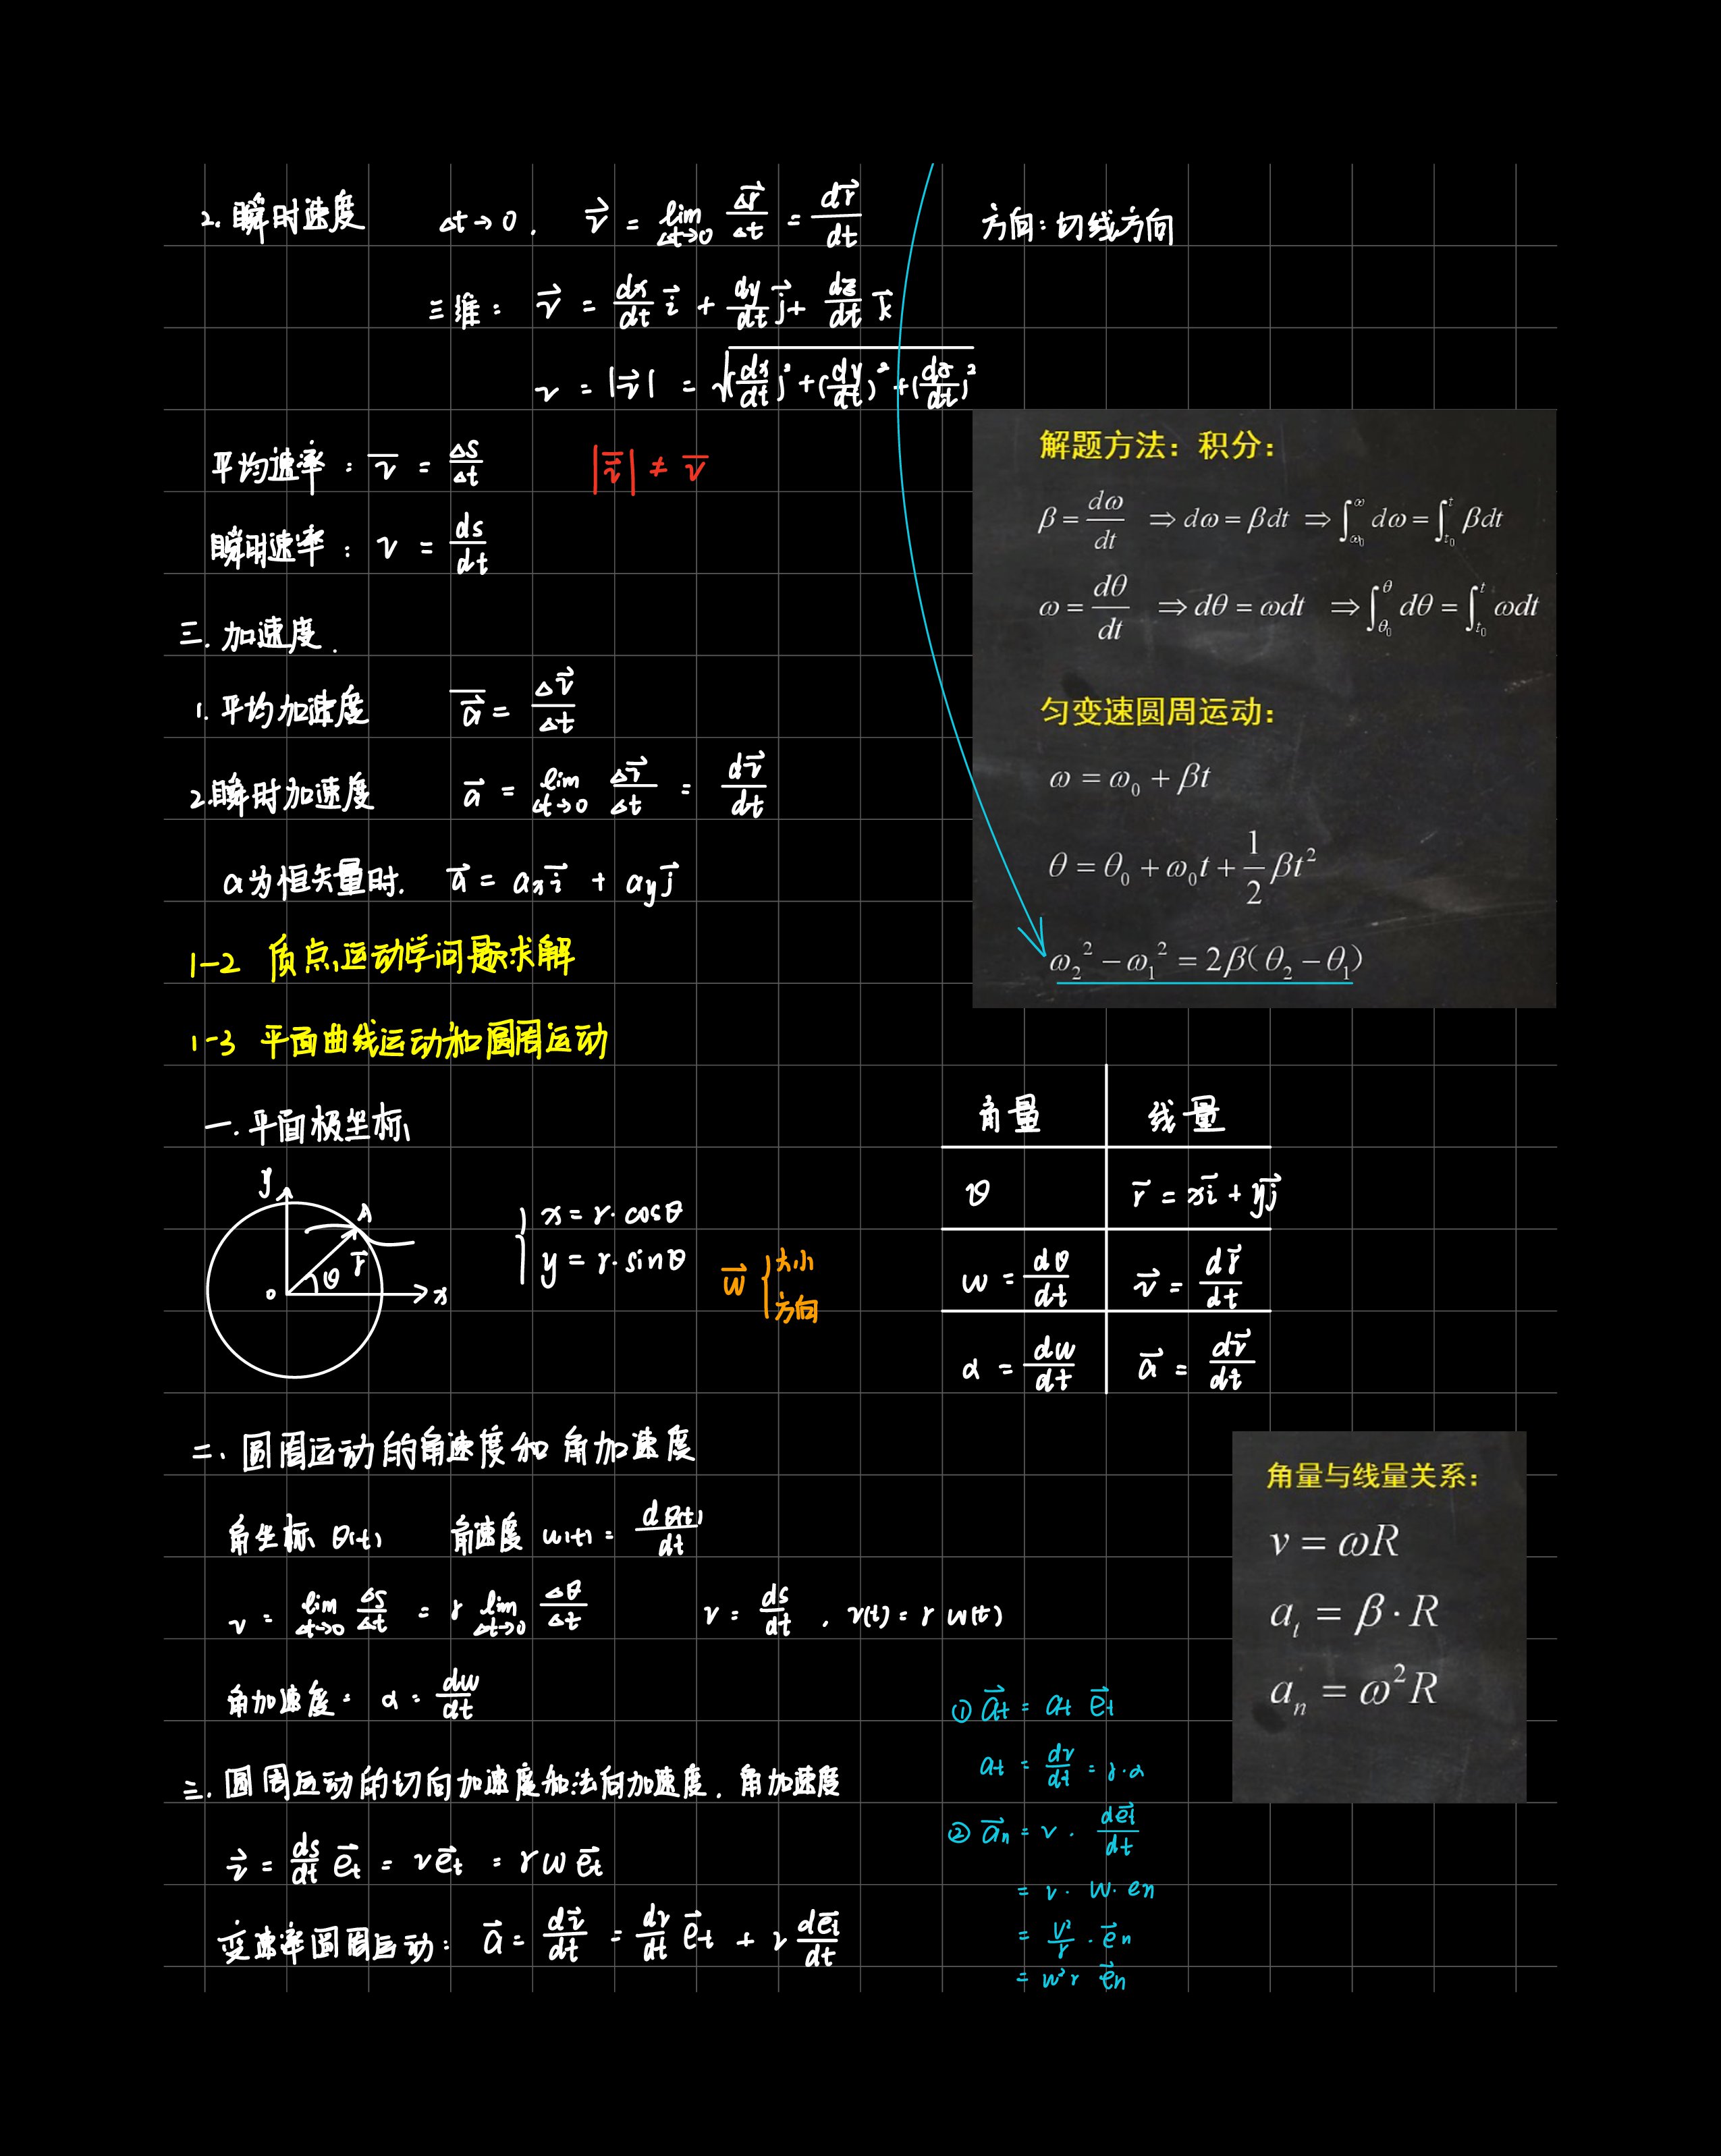 2. 瞬时速度 Δt→0. v⃗ = lim Δt→0 Δr⃗/Δt = dr⃗/dt 方向: 切线方向
三维: v⃗ = dx/dt i⃗ + dy/dt j⃗ + dz/dt k⃗
v = |v⃗| = √((dx/dt)² + (dy/dt)² + (dz/dt)²)
平均速率: v̅ = Δs/Δt |v̅⃗| ≠ v̅
瞬时速率: v = ds/dt
三. 加速度.
1. 平均加速度 a̅⃗ = Δv⃗/Δt
2. 瞬时加速度 a⃗ = lim Δt→0 Δv⃗/Δt = dv⃗/dt
a为恒矢量时. a⃗ = aₓi⃗ + a_y j⃗
解题方法：积分：
β = dω/dt ⇒ dω = βdt ⇒ ∫_{ω₀}^{ω} dω = ∫_{t₀}^{t} βdt
ω = dθ/dt ⇒ dθ = ωdt ⇒ ∫_{θ₀}^{θ} dθ = ∫_{t₀}^{t} ωdt
匀变速圆周运动：
ω = ω₀ + βt
θ = θ₀ + ω₀t + 1/2 βt²
ω₂² − ω₁² = 2β(θ₂ − θ₁)
1-2 质点运动学问题求解
1-3 平面曲线运动和圆周运动
一. 平面极坐标
y
A
r⃗
θ
o
x
x = r·cosθ
y = r·sinθ
w⃗ { 大小
方向
角量 线量
θ r⃗ = xi⃗ + yj⃗
w = dθ/dt v⃗ = dr⃗/dt
α = dw/dt a⃗ = dv⃗/dt
二. 圆周运动的角速度和角加速度
角坐标 θ(t) 角速度 w(t) = dθ(t)/dt
v = lim Δt→0 Δs/Δt = r lim Δt→0 Δθ/Δt v = ds/dt , v(t) = r w(t)
角加速度: α = dw/dt
角量与线量关系：
v = ωR
a_t = β·R
a_n = ω²R
三. 圆周运动的切向加速度和法向加速度. 角加速度
v⃗ = ds/dt e⃗t = ve⃗t = rw e⃗t
变速率圆周运动: a⃗ = dv⃗/dt = dv/dt e⃗t + v de⃗t/dt
① a⃗t = at e⃗t
at = dv/dt = r·α
② a⃗n = v · de⃗t/dt
= v · w · en
= v²/r · e⃗n
= w²r e⃗n